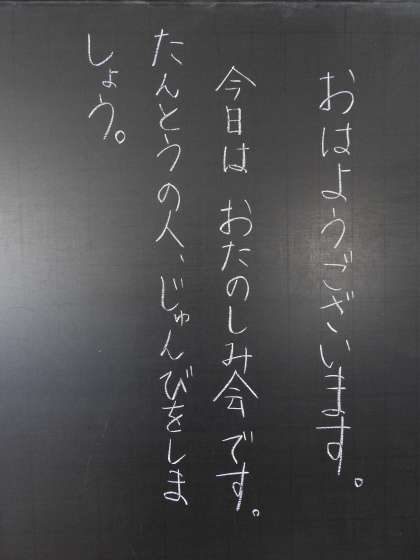 おはようございます。
今日は おたのしみ会です。
たんとうの人、じゅんびをしま
しょう。